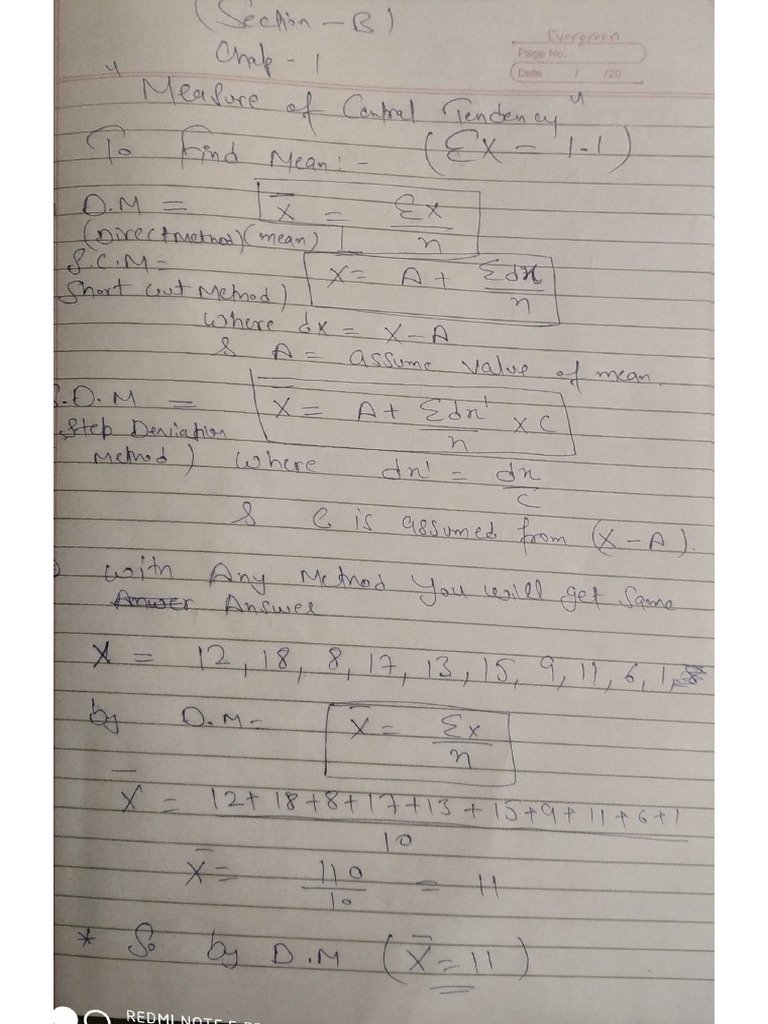 (Section - B)
Evergreen
Page No.
Date / /20
Chap - 1
" Measure of Central Tendency "
To Find Mean :- (Ex - 1.1)
D.M = X̄ = Σx/n
(Direct Method) (mean)
S.C.M = X = A + Σdx/n
Short Cut Method)
where dx = X - A
& A = assume value of mean.
S.D.M = X̄ = A + Σdx'/n × C
Step Deviation
Method) where dx' = dx/C
& C is assumed from (X - A).
With Any Method You will get Same
Answer Answer
X = 12, 18, 8, 17, 13, 15, 9, 11, 6, 1,
by D.M = X̄ = Σx/n
X̄ = 12+18+8+17+13+15+9+11+6+1
10
X̄ = 110/10 = 11
* So by D.M (X̄ = 11)
REDMI NOTE 5 PRO